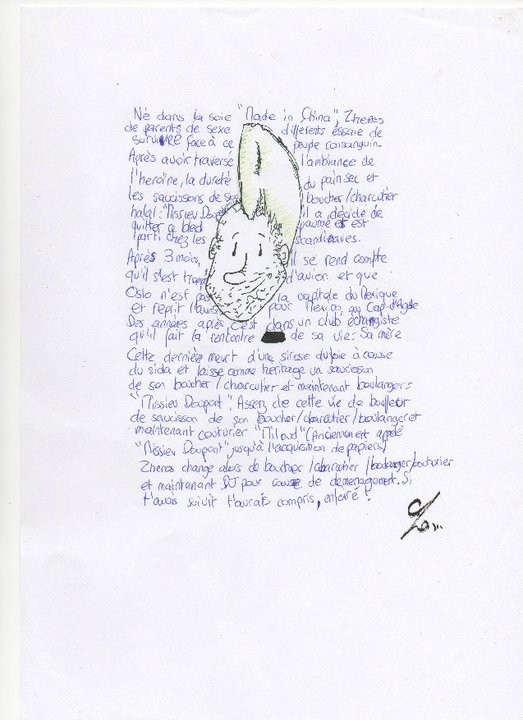 Né dans la soie "Made in China", Zheros
de parents de sexe différents essaie de
survivre face à ce peuple consanguin.
Après avoir traversé l'ambiance de
l'heroïne, la dureté du pain sec et
les saucissons de son boucher/charcutier
halal: "Missieu il a décidé de
quitter a bled paumé et est
parti chez les scandinaves.
Après 3 mois, il se rend compte
qu'il s'est d'avion et que
Oslo n'est pas la capitale du Mexique
et reprit pour au Cap-d'Agde
Des années après c'est dans un club échangiste
qu'il fait la rencontre de sa vie: Sa mère
Cette dernière meurt d'une du foie à cause
du sida et laisse comme heritage un saucisson
de son boucher/charcutier et maintenant boulanger:
"Missieu Doupont". Assez de cette vie de bouffeur
de saucisson de son boucher/charcutier/boulanger et
maintenant couturier "Miloud" (Anciennement appelé
"Missieu Doupont" jusqu'à l'acquisition de papiers)
Zheros change alors de boucher/charcutier/boulanger/couturier
et maintenant DJ pour cause de demenagement. Si
t'avais suivit t'aurais compris, enfoiré!